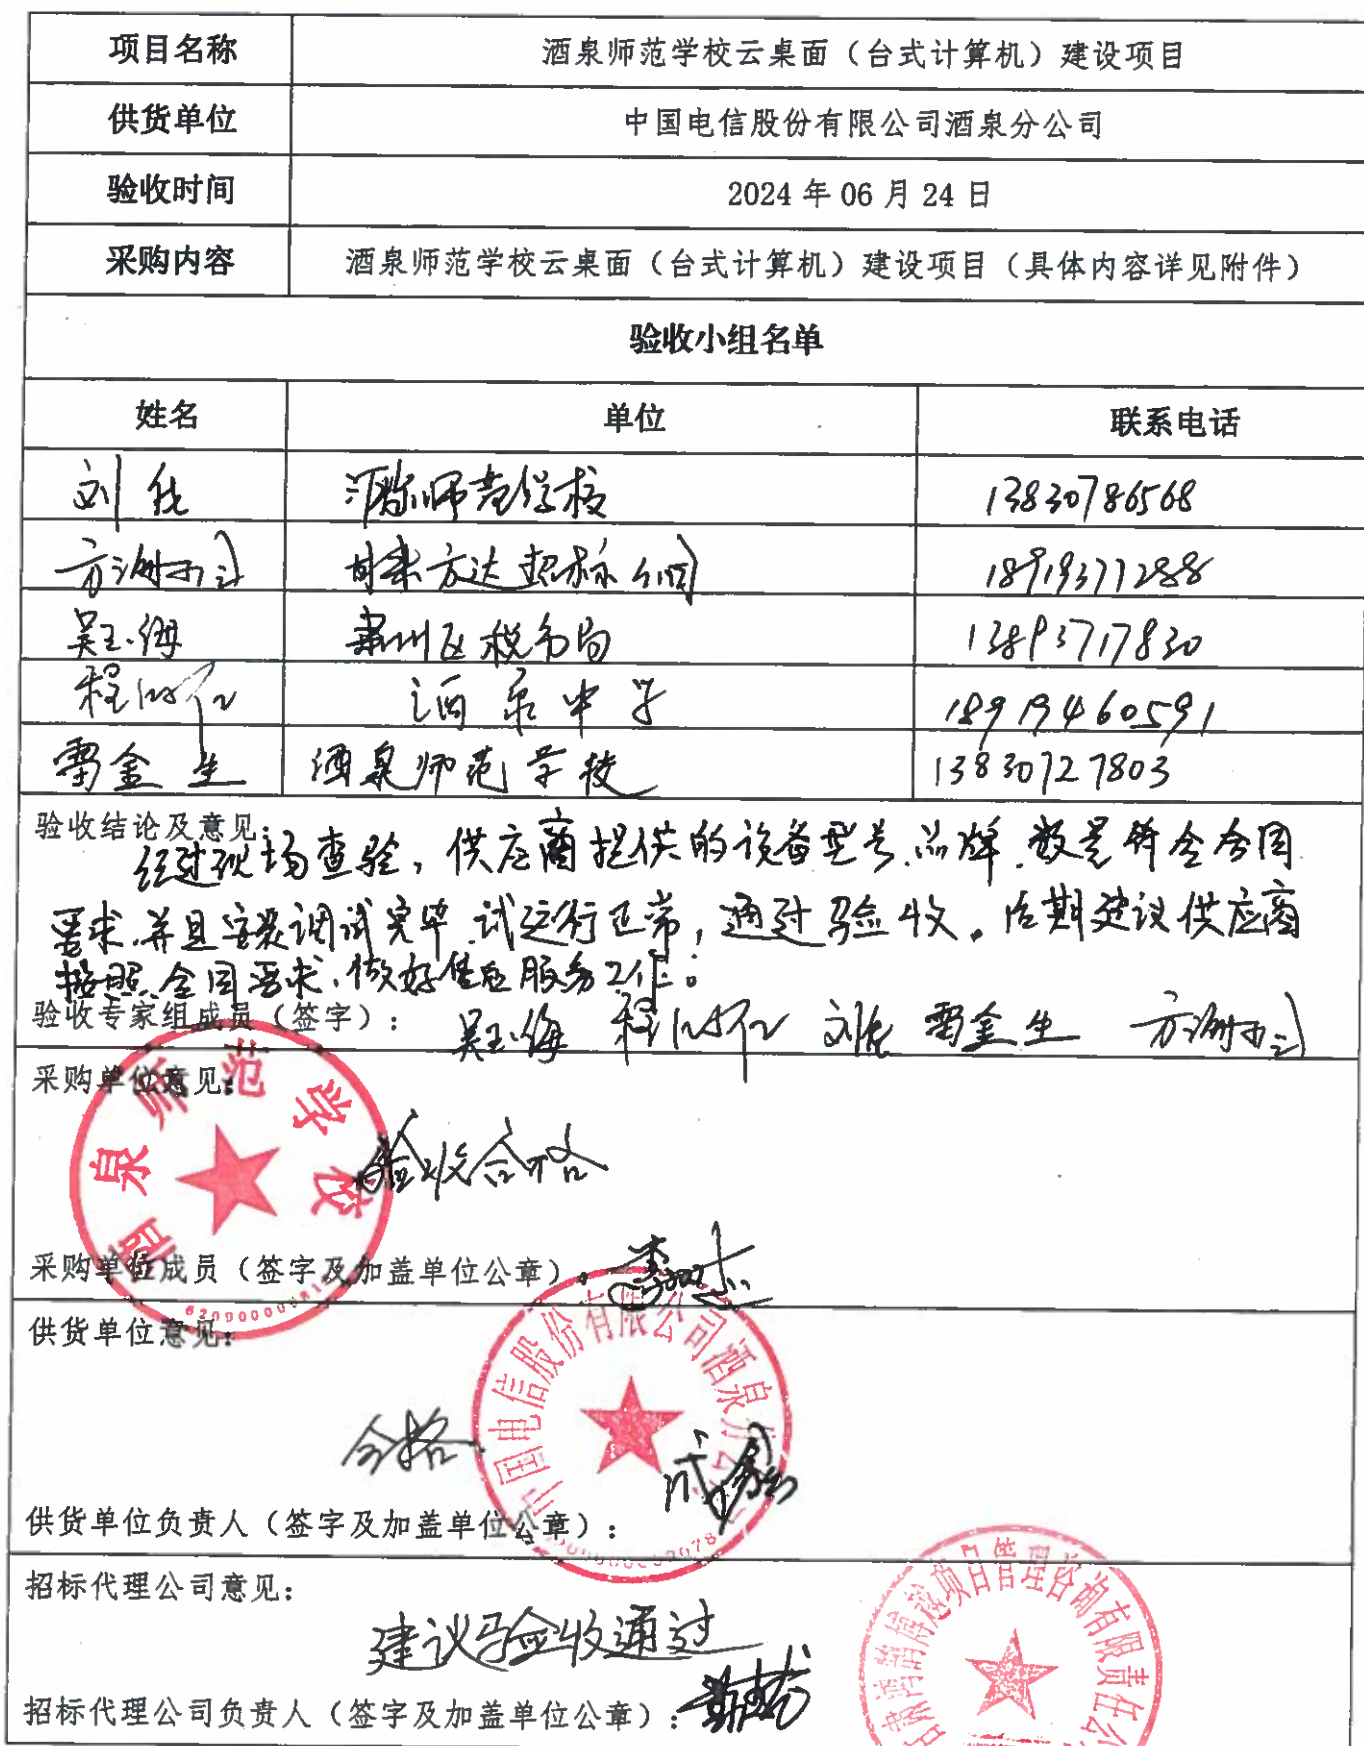 项目名称 酒泉师范学校云桌面（台式计算机）建设项目
供货单位 中国电信股份有限公司酒泉分公司
验收时间 2024 年 06 月 24 日
采购内容 酒泉师范学校云桌面（台式计算机）建设项目（具体内容详见附件）
验收小组名单
姓名 单位 联系电话
刘 酒泉师范学校 13830786568
方 甘肃方达招标公司 18919377288
吴玉海 肃州区税务局 13893717830
程 酒泉中学 18919460591
雷金生 酒泉师范学校 13830727803
验收结论及意见：
经过现场查验，供应商提供的设备型号、品牌、数量符合合同
要求，并且安装调试完毕，试运行正常，通过验收。后期建议供应商
按照合同要求，做好售后服务工作。
验收专家组成员（签字）： 吴玉海 程 刘 雷金生 方
采购单位意见：
酒泉师范学校
验收合格
采购单位成员（签字及加盖单位公章）：李
供货单位意见：
中国电信股份有限公司酒泉分公司
合格
供货单位负责人（签字及加盖单位公章）：
招标代理公司意见：
项目管理咨询有限责任公
建议验收通过
招标代理公司负责人（签字及加盖单位公章）：